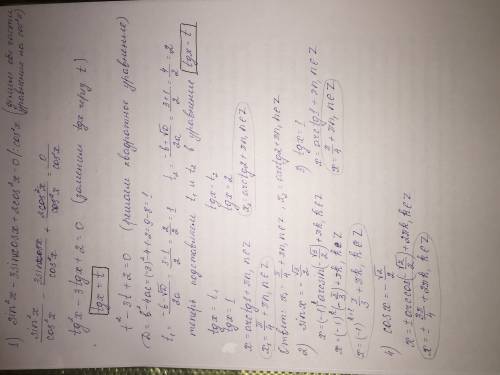 1) sin²x - 3sinxcosx + 2cos²x = 0 /:cos²x (делим обе части уравнения на cos²x)
sin²x/cos²x - 3sinxcosx/cos²x + 2cos²x/cos²x = 0/cos²x
tg²x - 3tgx + 2 = 0 (заменим tgx через t)
tgx = t
t² - 3t + 2 = 0 (решаем квадратное уравнение)
D = b² - 4ac = (-3)² - 4·2 = 9 - 8 = 1
t₁ = -b-√D/2a = 3-1/2 = 2/2 = 1 t₂ = -b+√D/2a = 3+1/2 = 4/2 = 2
теперь подставляем t₁ и t₂ в уравнение tgx = t
tgx = t₁ tgx = t₂
tgx = 1 tgx = 2
x = arctg1 + πn, n∈Z x₂ = arctg2 + πn, n∈Z
x₁ = π/4 + πn, n∈Z
Ответ: x₁ = π/4 + πn, n∈Z x₂ = arctg2 + πn, n∈Z
2) sinx = -√3/2 3) tgx = 1
x = (-1)ᵏ arcsin(-√3/2) + πk, k∈Z x = arctg1 + πn, n∈Z
x = (-1)ᵏ(-π/3) + πk, k∈Z x = π/4 + πn, n∈Z
x = (-1)ᵏ⁺¹ π/3 + πk, k∈Z
4) cosx = -√2/2
x = ± arccos(-√2/2) + 2πk, k∈Z
x = ± 3π/4 + 2πk, k∈Z